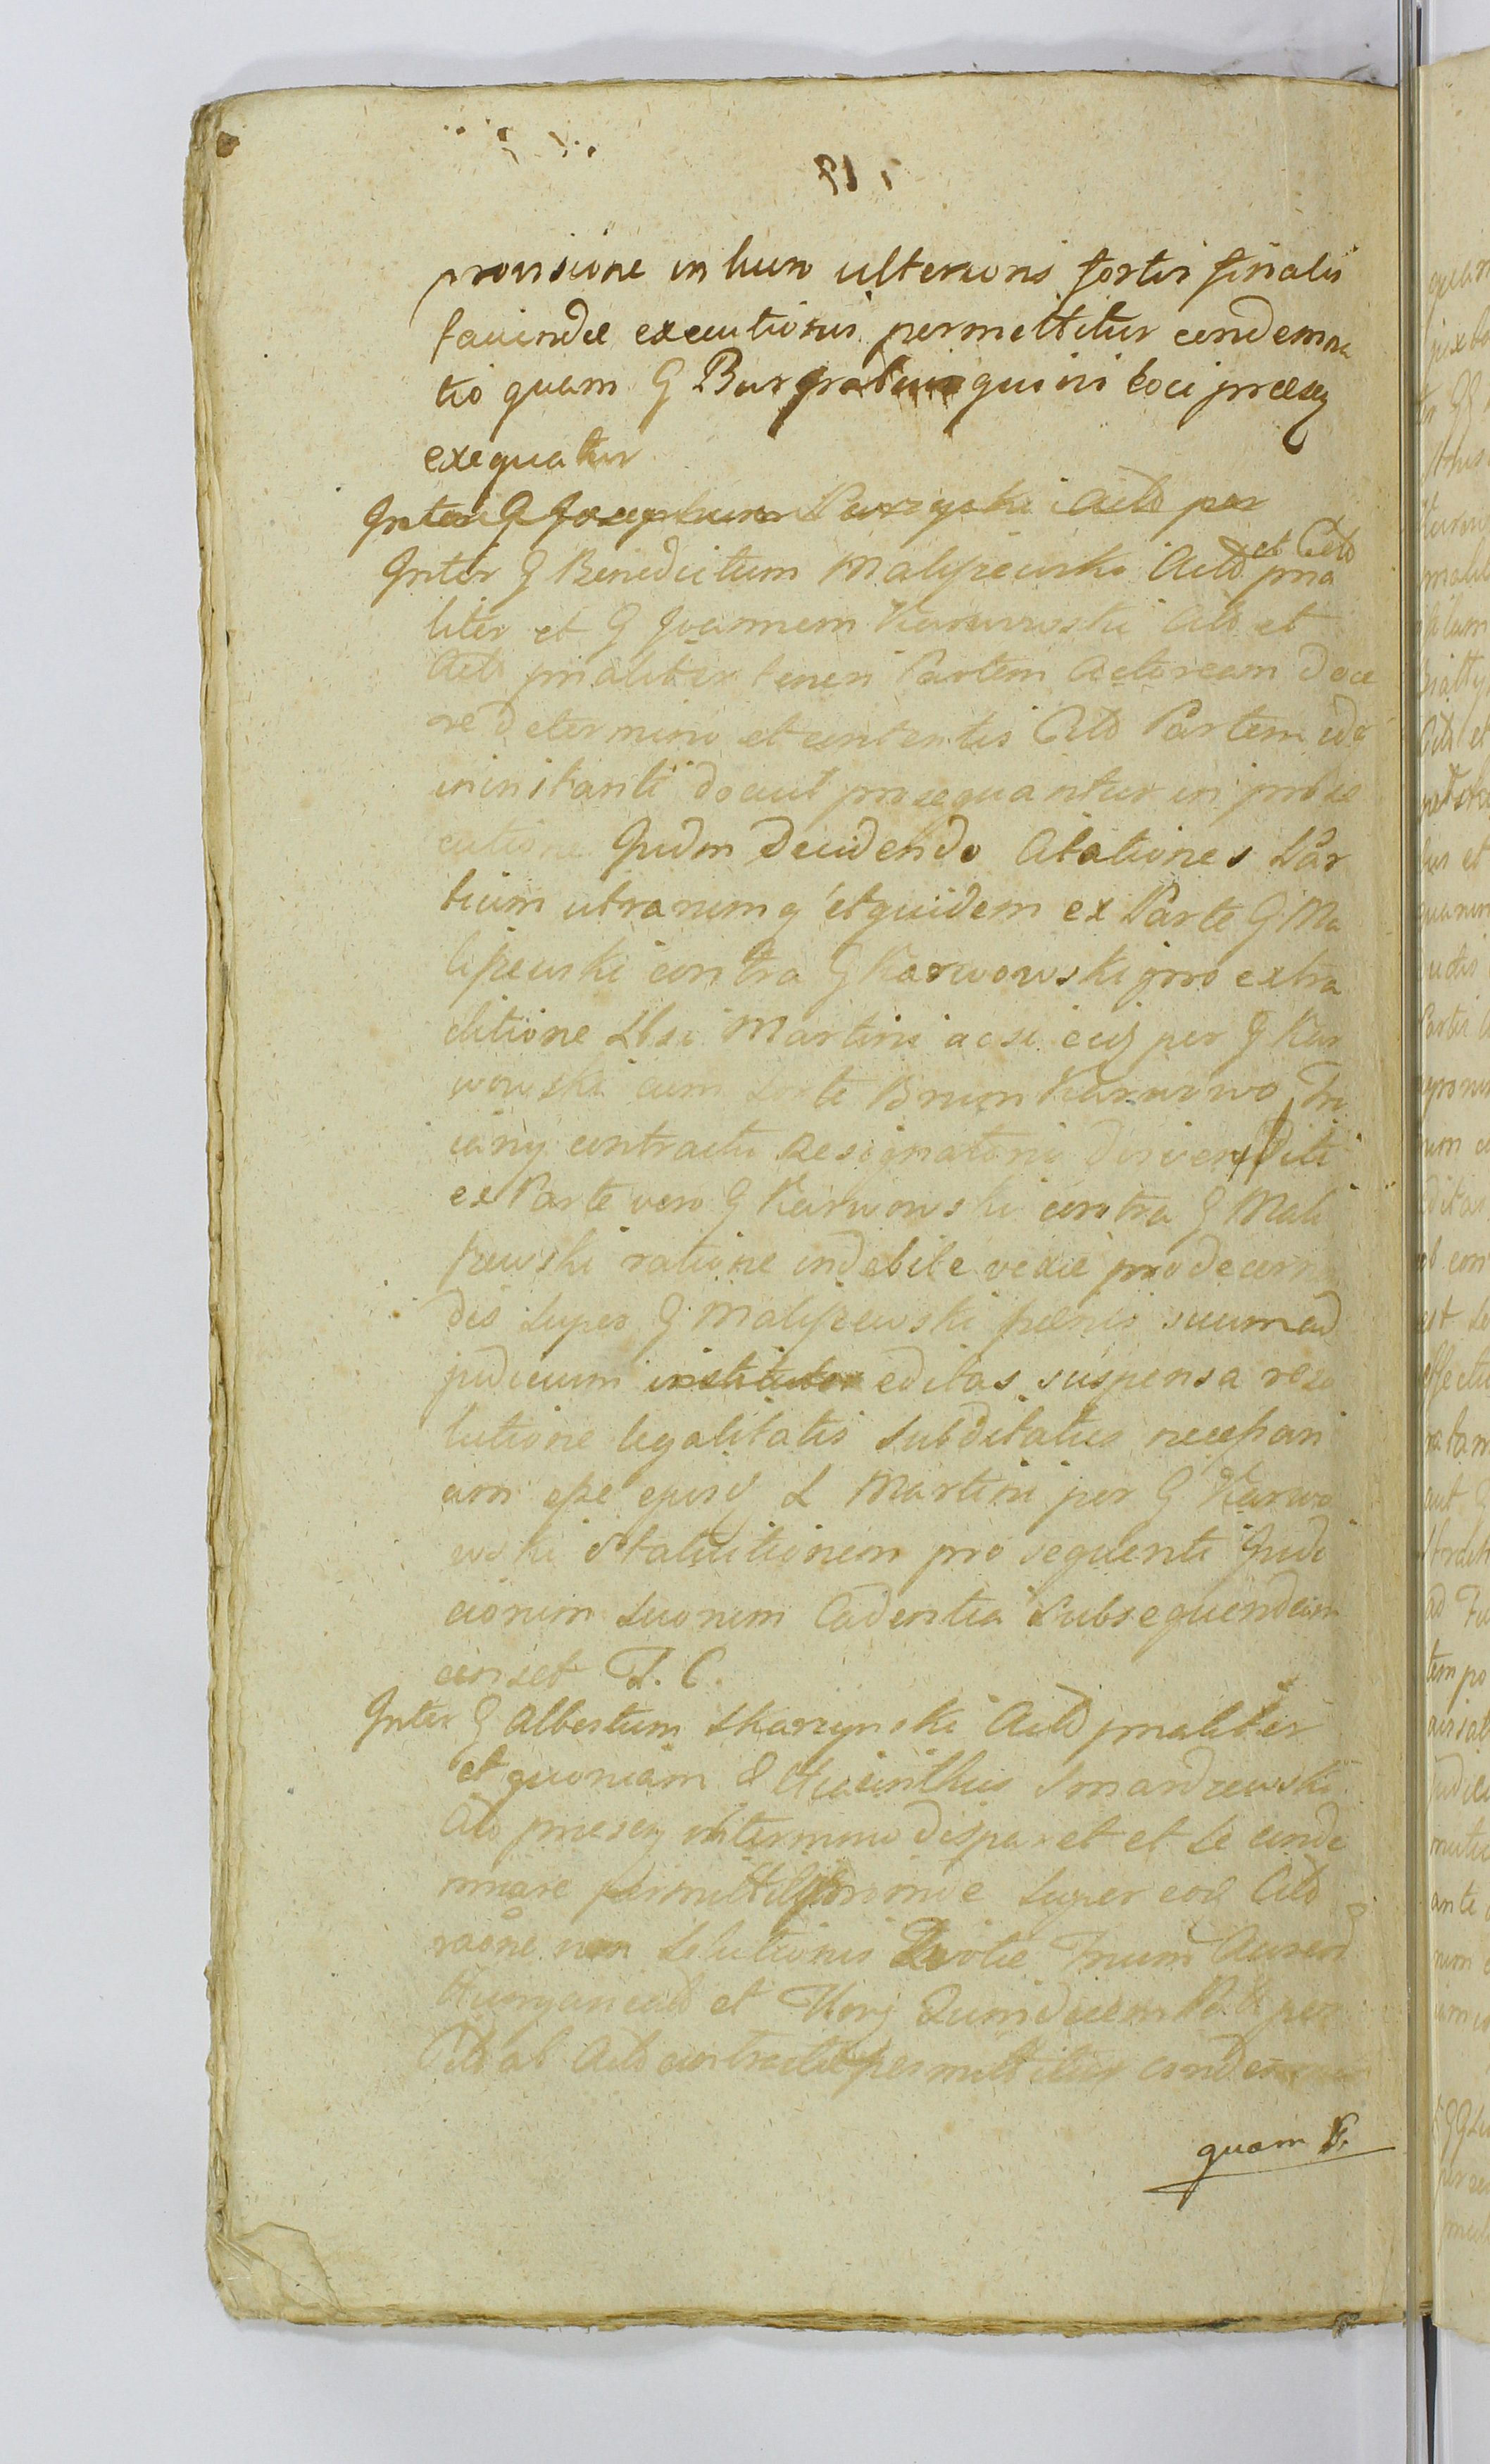 provisione in huno ulterioris fortis finalis
faciendæ executionis permittitur condemna
tio quam G Burgrabius guius loci præsez
exequatur
Inter G Josephum Parzyski Actō per
Inter G Benedictum Maliszewski Actō et Citō pna
liter et G Joannem Karwowski Citō et
Actō pnaliter teneri Partem Actoream doce
re determino et contentis Citō Partem id
in instanti docuit prosequantur in prose
cutione Judm Decidendo Citationes Par
tium utrarumq et quidem ex Parte G Ma
liszewski contra G Karwowski pro extra
ditione Lbsi Martini acsi eiq per G Kar
wowski cum Sorte Bnum Karwowo
contractu Resignatorio divenditi
ex Parte vero G Karwowski contra G Mali
szewski ratione indebite vexæ pro decerna
dis super G Maliszewski pœnis suum ad
judicium institutor editas suspensa reso
lutione legalitatis subditatus necessari
am esse episq L Martini per G Karwo
wski Statuitionem pro sequenti Judi
ciorum Suorum Cadentia Subsequendam
censet T. C.
Inter G Albertum Skarzynski Actō pnaliter
et quoniam G Hiacinthus Smardzewski
Citō præsez in termino disparet et se conde
mnare permittit proinde super eod Citō
raōne non Solutionis Quotæ Trium Aureor
Hungaricalō et Flor Quindecim Pol per
Citō ab Actō contractæ permittitur condemna
quam F.